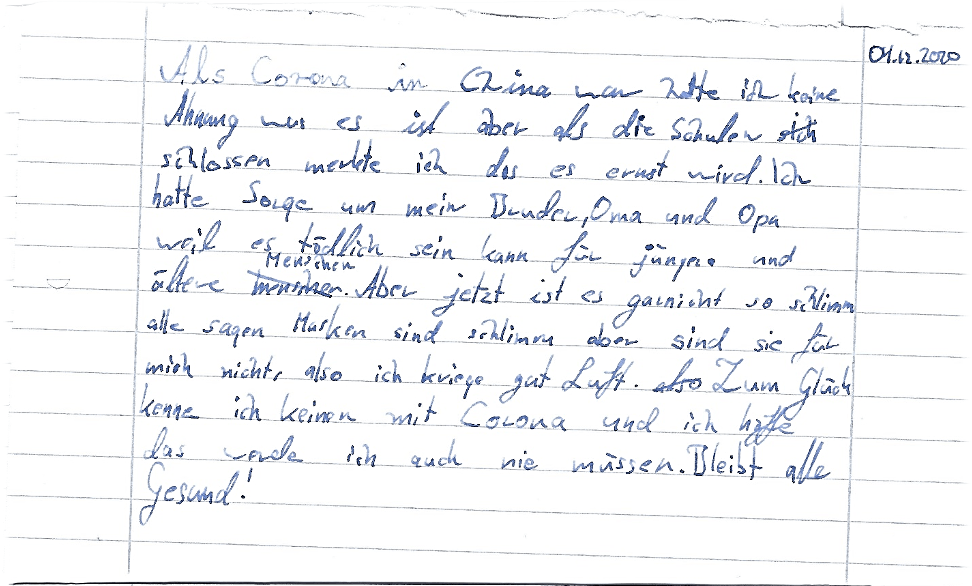 01.12.2020
Als Corona in China war hatte ich keine
Ahnung was es ist aber als die Schulen sich
schlossen merkte ich das es ernst wird. Ich
hatte Sorge um mein Bruder, Oma und Opa
weil es tödlich sein kann für jüngere und
ältere Menschen. Aber jetzt ist es garnicht so schlimm
alle sagen Masken sind schlimm aber sind sie für
mich nicht, also ich kriege gut Luft. also Zum Glück
kenne ich keinen mit Corona und ich hoffe
das werde ich auch nie müssen. Bleibt alle
Gesund!